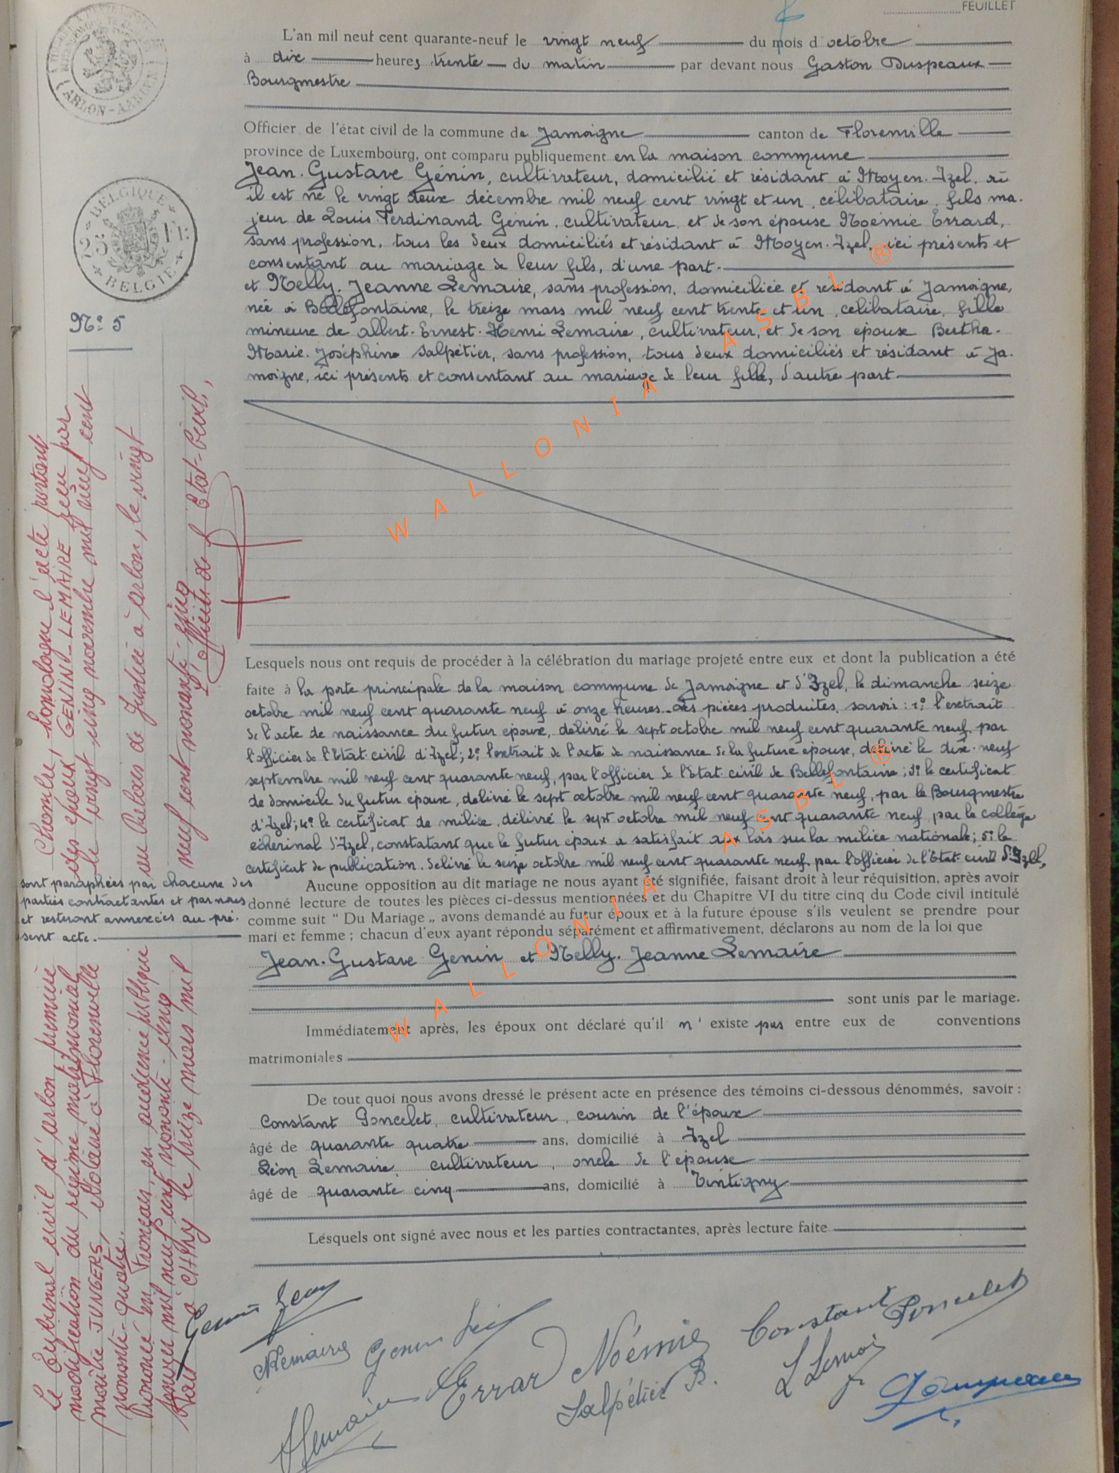 FEUILLET
L'an mil neuf cent quarante-neuf le vingt neuf du mois d'octobre
à dix heures trente du matin par devant nous Gaston Duspeaux
Bourgmestre
Officier de l'état civil de la commune de Jamoigne canton de Florenville
province de Luxembourg, ont comparu publiquement en la maison commune
Jean-Gustave Génin, cultivateur, domicilié et résidant à Moyen-Izel où
il est né le vingt deux décembre mil neuf cent vingt et un, célibataire, fils ma-
jeur de Louis Ferdinand Génin, cultivateur et de son épouse Noémie Errard,
sans profession, tous les deux domiciliés et résidant à Moyen-Izel, ici présents et
consentant au mariage de leur fils, d'une part.
et Nelly-Jeanne Lemaire, sans profession, domiciliée et résidant à Jamoigne,
née à Bellefontaine, le treize mars mil neuf cent trente et un, célibataire, fille
mineure de Albert-Ernest-Henri Lemaire, cultivateur, et de son épouse Bertha-
Marie-Joséphine Salpétier, sans profession, tous deux domiciliés et résidant à Ja-
moigne, ici présents et consentant au mariage de leur fille, d'autre part
WALLONIA ASBL ®
Lesquels nous ont requis de procéder à la célébration du mariage projeté entre eux et dont la publication a été
faite à la porte principale de la maison commune de Jamoigne et d'Izel, le dimanche seize
octobre mil neuf cent quarante neuf à onze heures. Les pièces produites, savoir : 1° l'extrait
de l'acte de naissance du futur époux, délivré le sept octobre mil neuf cent quarante neuf, par
l'officier de l'Etat civil d'Izel; 2° l'extrait de l'acte de naissance de la future épouse, délivré le dix-neuf
septembre mil neuf cent quarante neuf, par l'officier de l'Etat civil de Bellefontaine; 3° le certificat
de domicile du futur époux, délivré le sept octobre mil neuf cent quarante neuf, par le Bourgmestre
d'Izel; 4° le certificat de milice, délivré le sept octobre mil neuf cent quarante neuf, par le collège
échevinal d'Izel, constatant que le futur époux a satisfait aux lois sur la milice nationale; 5° le
certificat de publication, délivré le seize octobre mil neuf cent quarante neuf, par l'officier de l'Etat civil d'Izel,
Aucune opposition au dit mariage ne nous ayant été signifiée, faisant droit à leur réquisition, après avoir
donné lecture de toutes les pièces ci-dessus mentionnées et du Chapitre VI du titre cinq du Code civil intitulé
comme suit “ Du Mariage „ avons demandé au futur époux et à la future épouse s'ils veulent se prendre pour
mari et femme ; chacun d'eux ayant répondu séparément et affirmativement, déclarons au nom de la loi que
Jean-Gustave Genin et Nelly-Jeanne Lemaire
sont unis par le mariage.
Immédiatement après, les époux ont déclaré qu'il n'existe pas entre eux de conventions
matrimoniales
WALLONIA ASBL ®
De tout quoi nous avons dressé le présent acte en présence des témoins ci-dessous dénommés, savoir :
Constant Poncelet, cultivateur, cousin de l'époux
âgé de quarante quatre ans, domicilié à Izel
Léon Lemaire, cultivateur, oncle de l'épouse
âgé de quarante cinq ans, domicilié à Tintigny
Lesquels ont signé avec nous et les parties contractantes, après lecture faite
Genin Jean
NLemaire
Errard Noémie
Constant Poncelet
Salpétier B.
ARLON-AARLEN
BELGIQUE
BELGIE
N° 5
sont paraphées par chacune des
parties contractantes et par nous
et resteront annexées au pré-
sent acte.
le Tribunal civil d'Arlon, première
Chambre, homologue l'acte portant
modification du régime matrimonial
des époux GENIN-LEMAIRE reçu par
maître JUNGERS, Notaire à Florenville
le vingt cinq novembre mil neuf cent
nonante-quatre.
Prononcé en Français, en audience publique
au Palais de Justice à Arlon, le vingt
janvier mil neuf cent nonante-cinq
Fait à Chiny le treize mars mil
neuf cent nonante-cinq
L'officier de l'Etat-Civil,